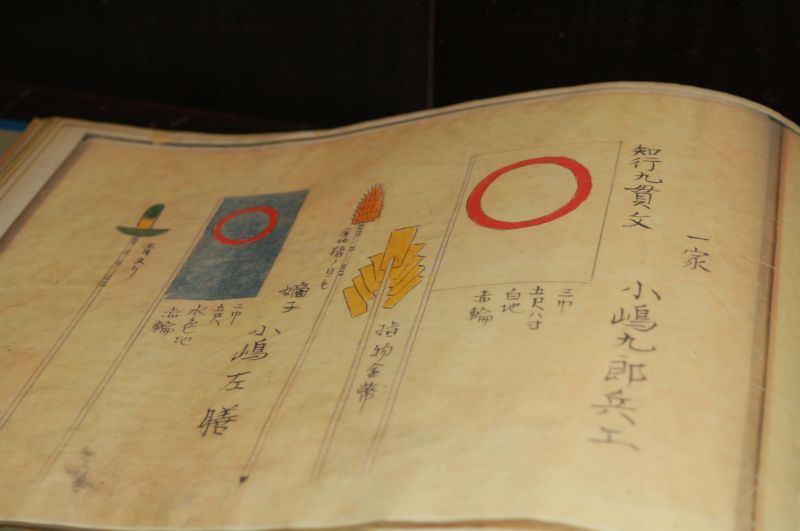 一家
知行九貫文
小嶋九郎兵エ
三巾
五尺八寸
白地
赤輪
指物金幣
嫡子
小嶋左膳
二巾
五尺
水色地
赤輪